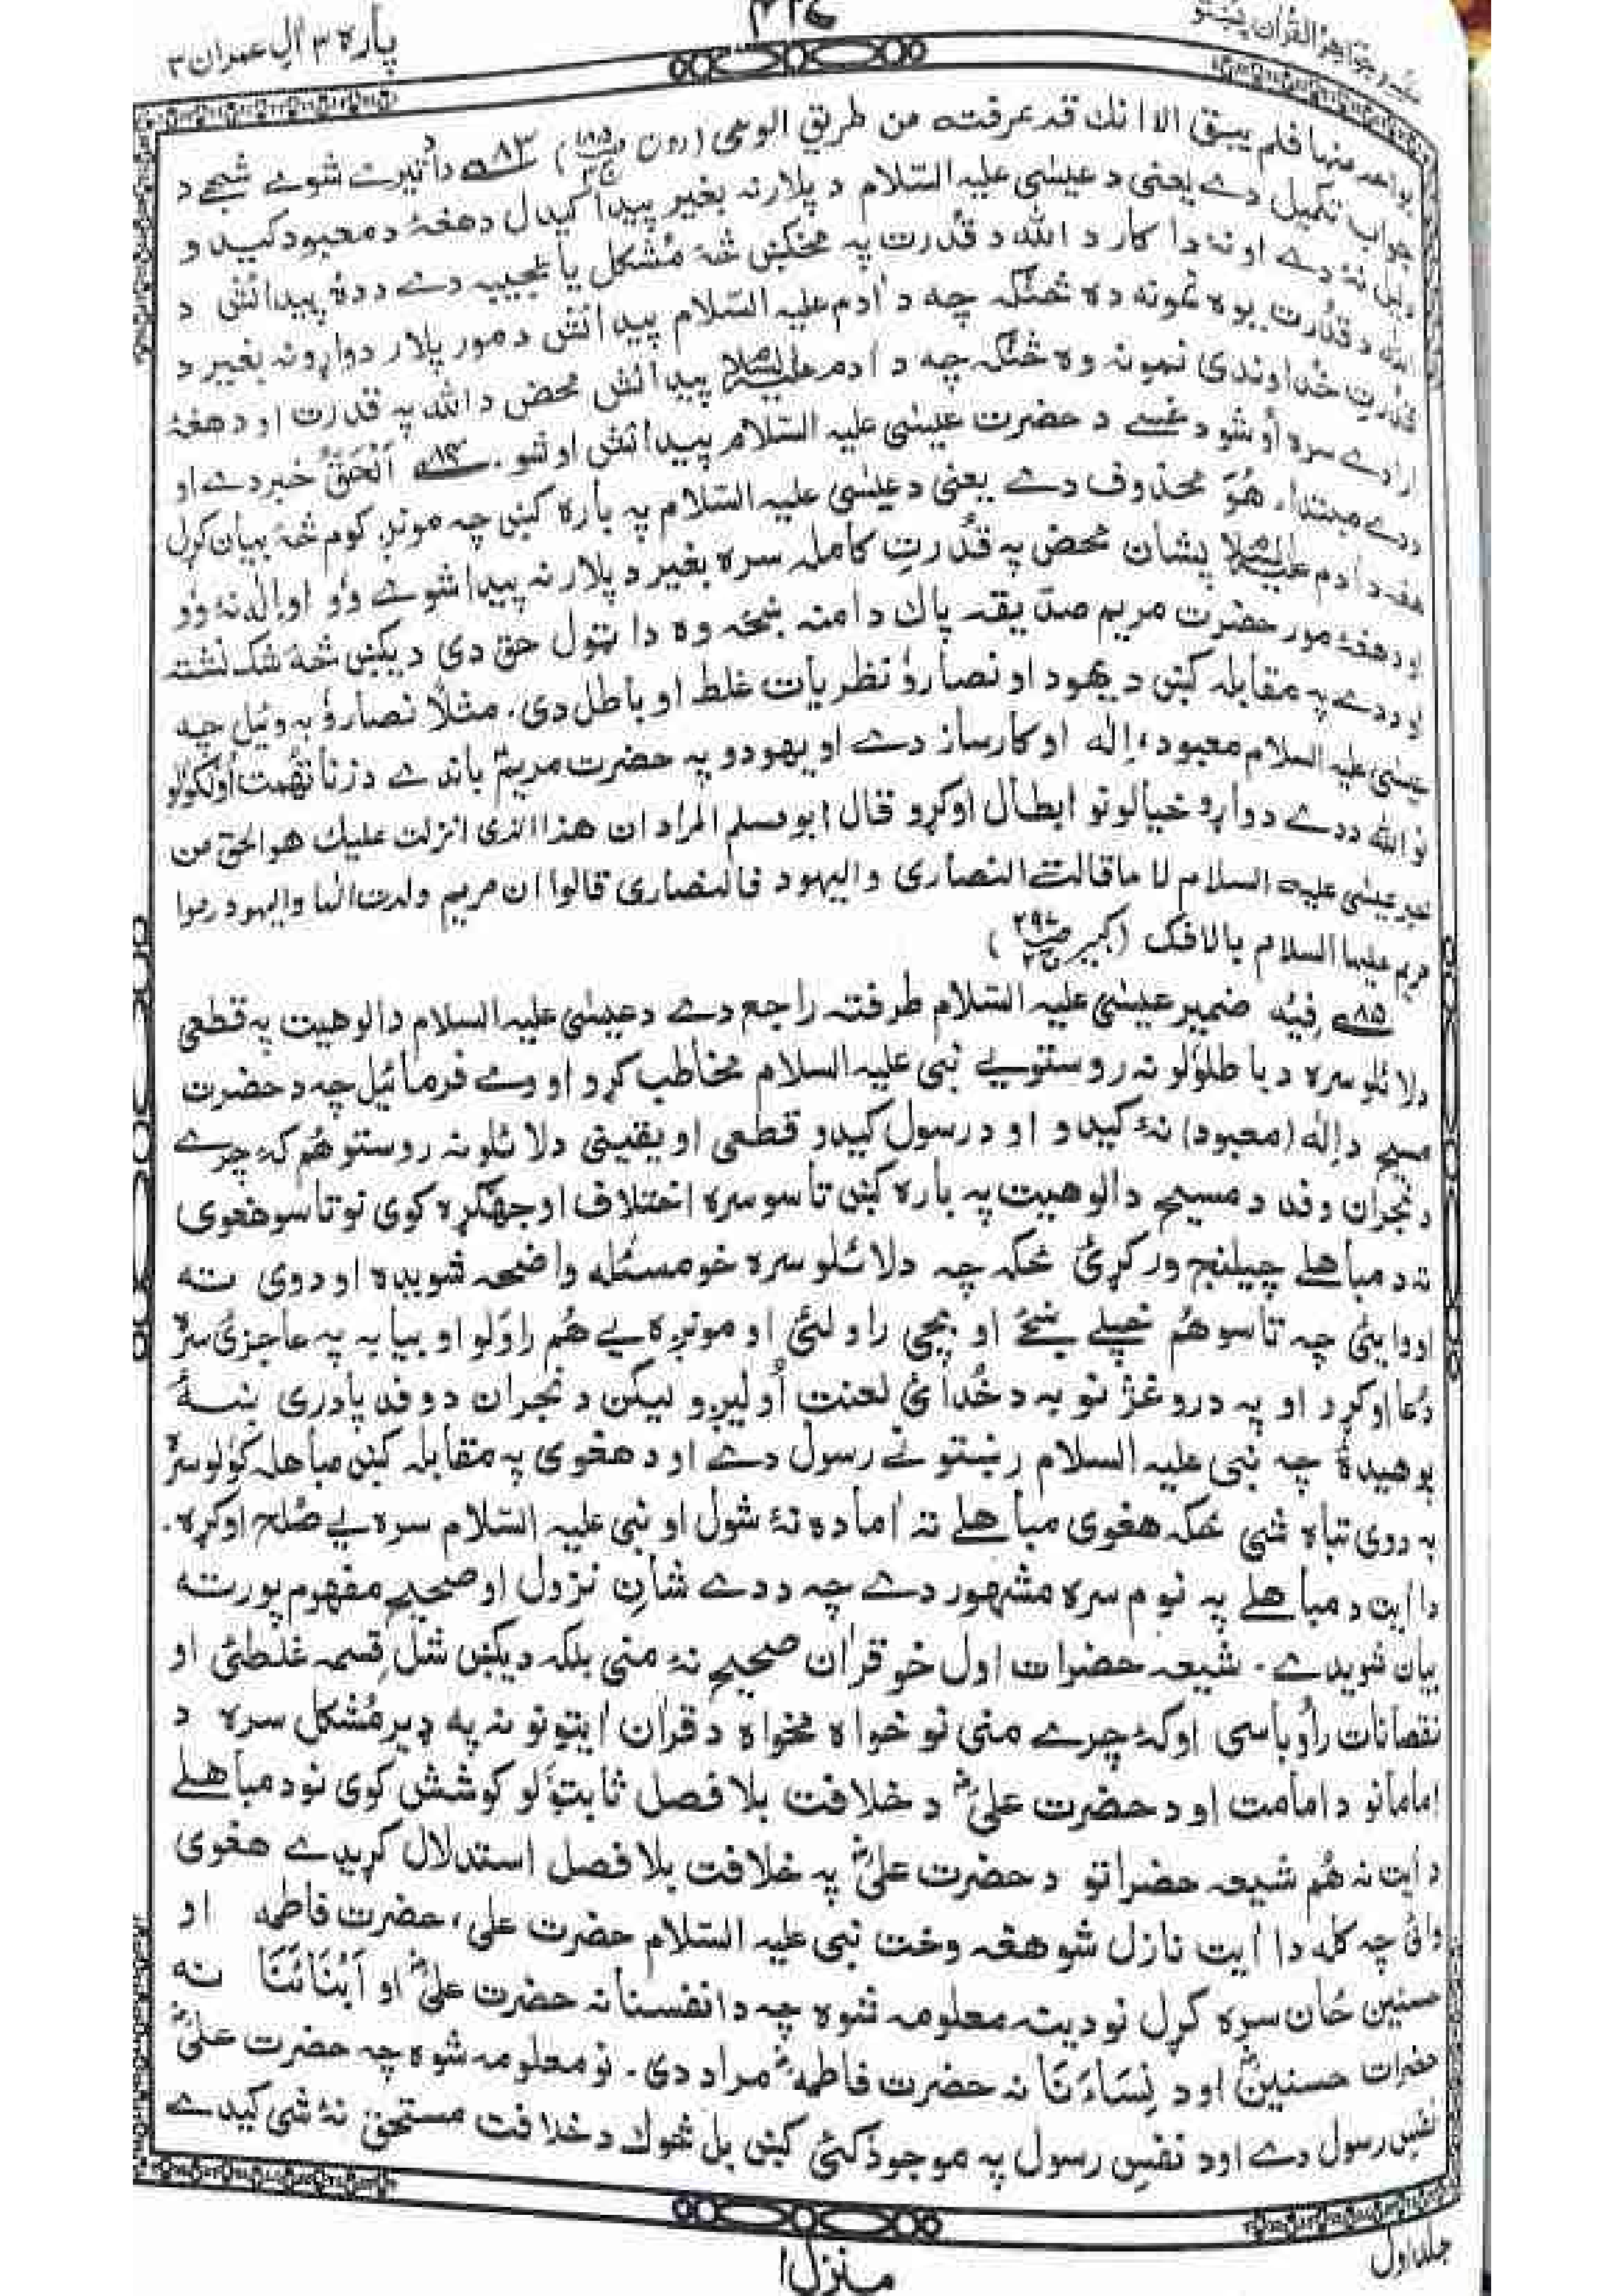 پاره ۳ اٰل عمران ۳
بواحد منها فلم يبق الا انك قد عرفته من طريق الوحى (روح ) ۸۳ دا تیرے شوے شبهے د
جواب تکمیل دے یعنی د عیسٰی علیہ السّلام د پلار نہ بغیر پیدا کیدل د هغهٔ د معبود کیدو
دلیل نهٔ دے او نهٔ دا کار د الله د قُدرت په مخکښ څهٔ مُشکل یا عجیبه دے د دهٔ پیدائش د
الله د قُدرت یوه نمونه ده څنګه چه د اٰدم علیہ السّلام پیدائش د مور پلار دواړو نه بغیر د
قُدرتِ خُداوندی نمونه وه څنګه چه د اٰدم علیہ السلام پیدائش محض د الله په قدرت او د هغهٔ
ارادے سره اُوشو دغسے د حضرت عیسٰی علیہ السّلام پیدائش اوشو. ۸۴ اَلْحَقُّ خبر دے او
ددے مبتداء هُوَ محذوف دے یعنی د عیسٰی علیہ السّلام په باره کښ چه مونږ کوم څهٔ بیان کړل
هغه د اٰدم علیہ السلام پشان محض په قُدرتِ کامله سره بغیر د پلار نه پیدا شوے وُو او اِلٰه نهٔ وُو
او د هغهٔ مور حضرت مریم صدّیقه پاك دامنه ښځه وه دا ټول حق دی دیکښ څهٔ شک نشته
او ددے په مقابله کښ د یهود او نصاروٰ نظریات غلط او باطل دی. مثلاً نصاروٰ به وئیل چه
عیسٰی علیہ السلام معبود، اِلٰه او کارساز دے او یهودو په حضرت مریمؑ باندے د زنا تهُمت اُولګولو
نو الله ددے دواړو خیالونو ابطال اوکړو قال ابو مسلم المراد ان هذا الذى انزلت عليك هو الحق من
خبر عيسٰى عليه السلام لا ما قالت النصارى واليهود فالنصارى قالوا ان مريم ولدت الها واليهود رموا
مريم عليها السلام بالافك (كبير )
۸۵ فِیْهِ ضمیر عیسٰی علیہ السّلام طرفته راجع دے د عیسٰی علیہ السلام د الوهیت په قطعی
دلائلو سره د باطلولو نه روستو یے نبی علیہ السلام مخاطب کړو او وے فرمائیل چه د حضرت
مسیح د اِلٰه (معبود) نهٔ کیدو او د رسول کیدو قطعی او یقینی دلائلو نه روستو هُم که چرے
د نجران وفد د مسیح د الوهیت په باره کښ تاسو سره اختلاف او جهګړه کوی نو تاسو هغوی
ته د مباهلے چیلنج ورکړئ ځکه چه دلائلو سره خو مسئله واضحه شویده او دوی ته
اووایئ چه تاسو هُم خپلے ښځے او بچی راولئ او مونږه یے هُم راوَلو او بیا به په عاجزئ سره
دُعا اوکړو او په دروغژنو به د خُدائ لعنت اُولیږو لیکن د نجران د وفد پادری ښهٔ
پوهیدهٔ چه نبی علیہ السلام رښتونے رسول دے او د هغوی په مقابله کښ مباهله کولو سره
به دوی تباه شی ځکه هغوی مباهلے ته اٰماده نهٔ شول او نبی علیہ السّلام سره یے صُلح اوکړه.
دا اٰیت د مباهلے په نوم سره مشهور دے چه ددے شانِ نزول او صحیح مفهوم پورته
بیان شویدے. شیعه حضرات اول خو قراٰن صحیح نهٔ منی بلکه دیکښ شل قِسمه غلطئ او
نقصانات راُوباسی او که چرے منی نو خواه مخواه د قراٰن اٰیتونو نه په ډیر مُشکل سره د
امامانو د امامت او د حضرت علیؓ د خلافت بلا فصل ثابتولو کوشش کوی نو د مباهلے
د اٰیت نه هُم شیعه حضراتو د حضرت علیؓ په خلافت بلا فصل استدلال کړیدے هغوی
وائی چه کله دا اٰیت نازل شو هغه وخت نبی علیہ السّلام حضرت علی، حضرت فاطمه او
حسنین ځان سره کړل نو دیته معلومه شوه چه د انفسنا نه حضرت علیؓ او اَبْنَائَنَا نه
حضرات حسنینؓ او د نِسَاءَنَا نه حضرت فاطمهؓ مراد دی. نو معلومه شوه چه حضرت علیؓ
نفسِ رسول دے او د نفسِ رسول په موجودګئ کښ بل څوك د خلافت مستحق نهٔ شی کیدے
جلد اول
منزل ۱